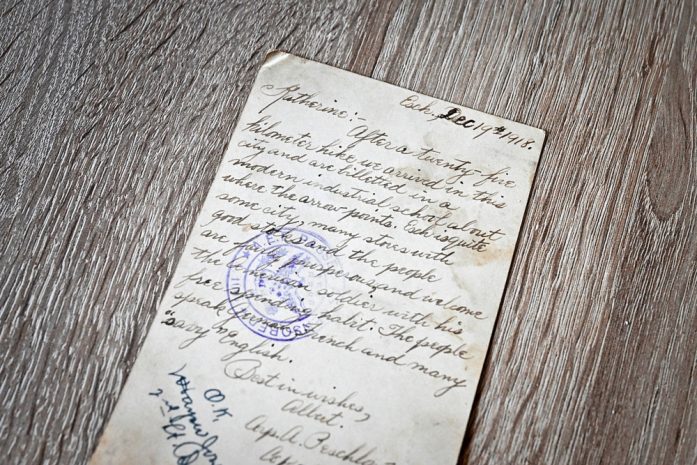 Esch, Dec 19th 1918.
Katherine:-
After a twenty-five
kilometer hike we arrived in this
city and are billeted in a
modern industrial school about
where the arrow points. Esch is quite
some city, many stores with
good stocks and the people
are fairly and welcome
the American soldier with his
free spending habit. The people
speak German, French and many
"savy" English.
Best in wishes,
Albert.
O.K.